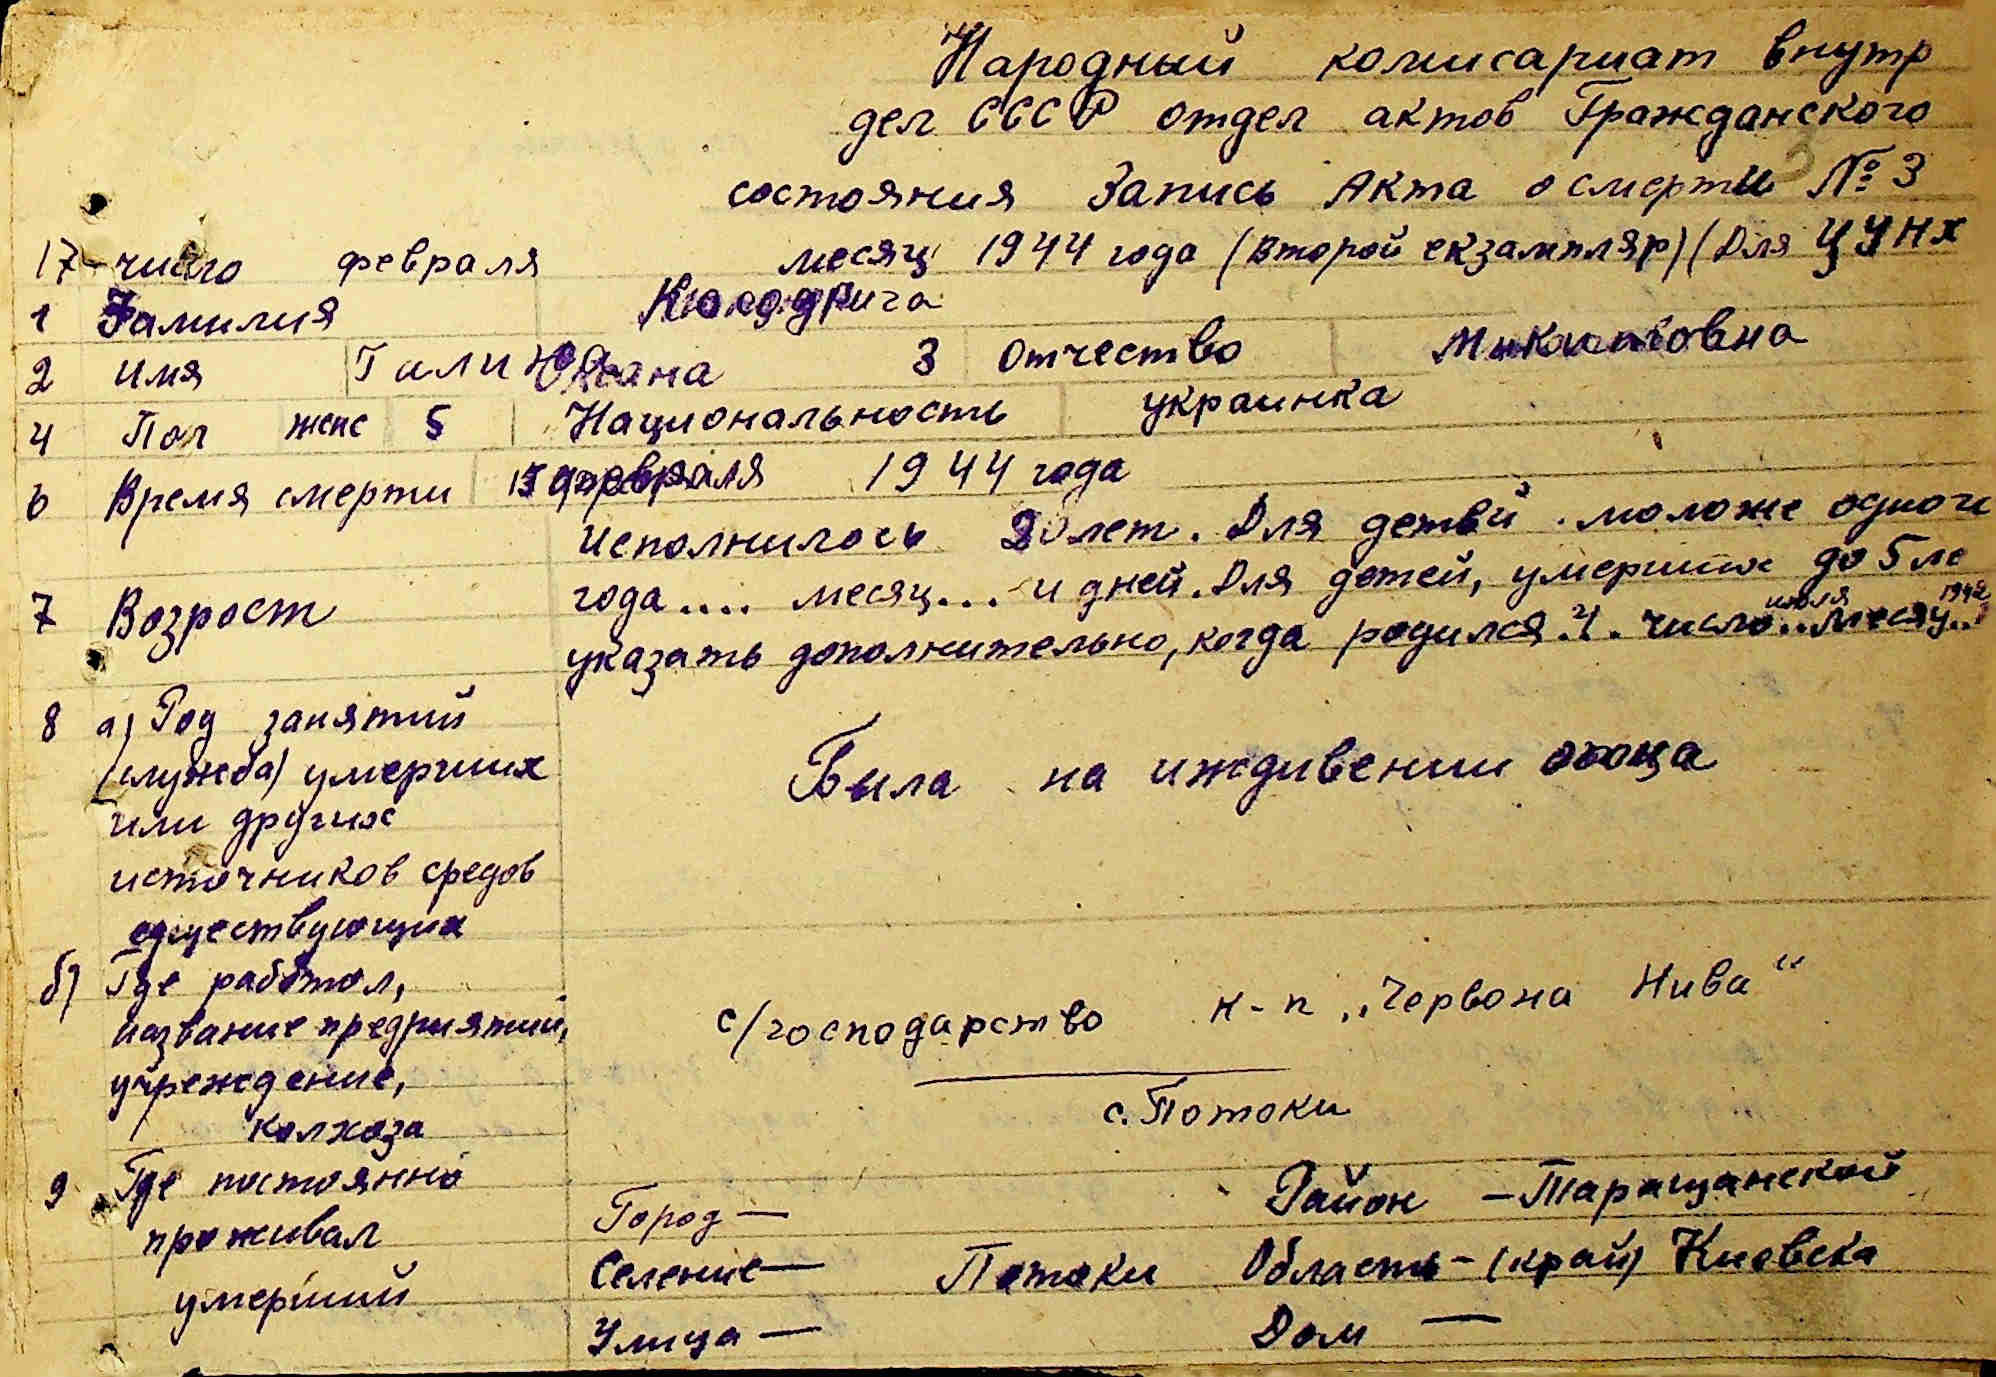 Народный комисариат внутр
дел СССР отдел актов Гражданского
состояния Запись Акта о смерти № 3
17 число февраля месяц 1944 года (второй екзампляр) (Для ЦУНХ
1 Фамилия
2 имя 3 Отчество
4 Пол женс 5 Национальность украинка
6 Время смерти февраля 1944 года
исполнилось лет. Для детей моложе одного
7 Возрост года.... месяц... и дней. Для детей, умерших до 5 ле
июля 1942
указать дополнительно, когда родился 4. число.. месяц..
8 а) Род занятий
(служба) умерших Была на иждивении отца
или других
источников средов
существующих
б) Где работал,
название предриятий, с/господарство н-п „Червона Нива"
учреждение, с. Потоки
колхоза
9 Где постоянно Город — Район — Таращанской
проживал Селение — Потоки Область — (край) Киевска
умерший Улица — Дом —